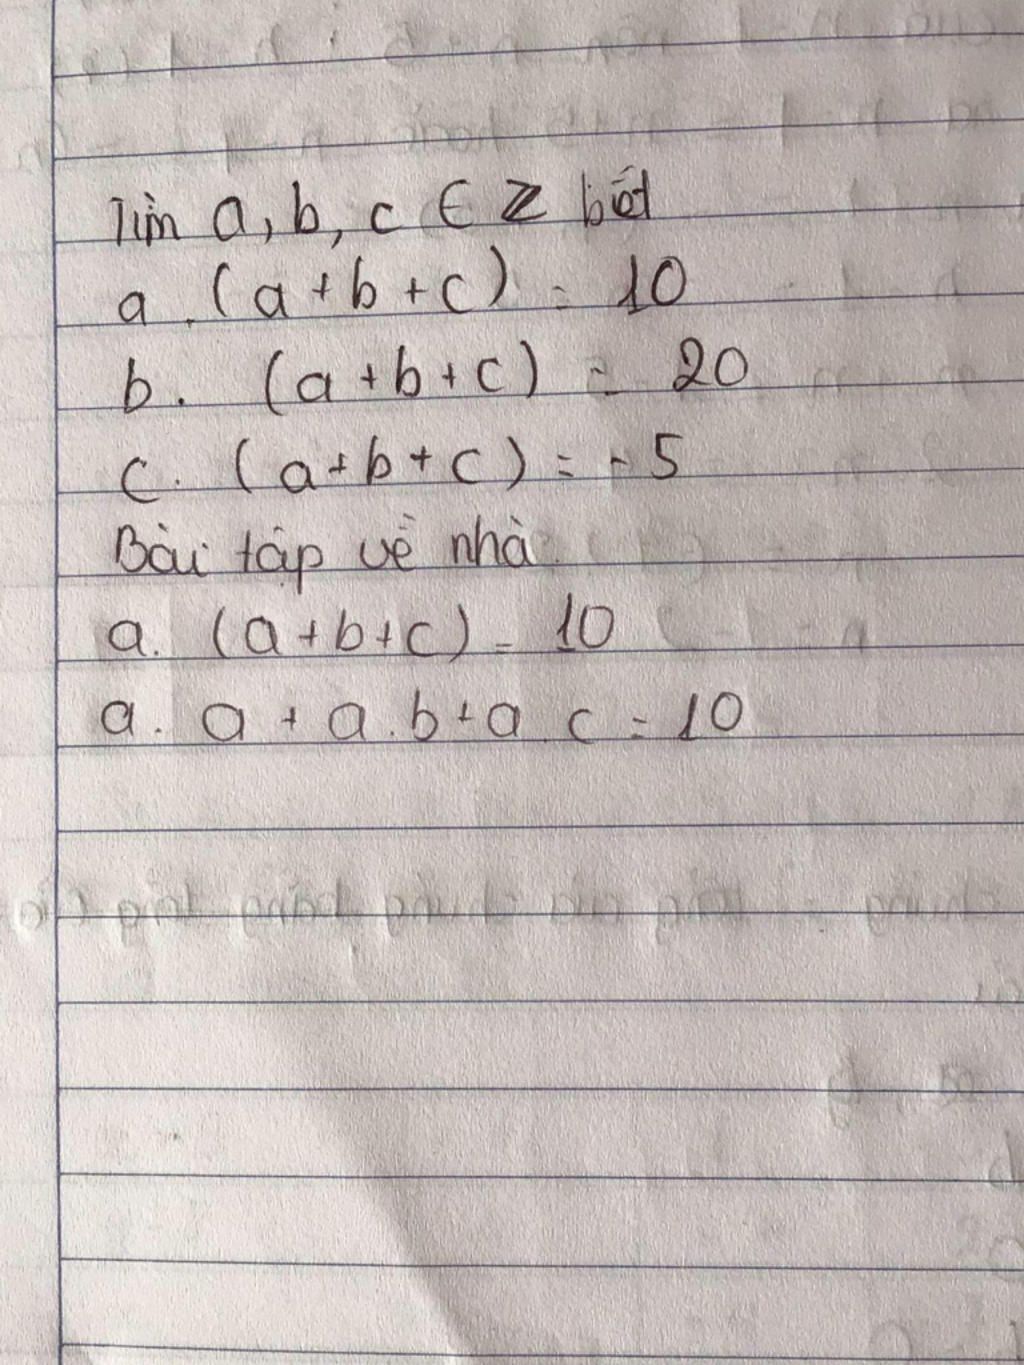 Tìm a, b, c ∈ Z biết
a . (a + b + c) = 10
b . (a + b + c) = 20
c . (a + b + c) = - 5
Bài tập về nhà.
a. (a + b + c) = 10
a. a + a.b + a c = 10